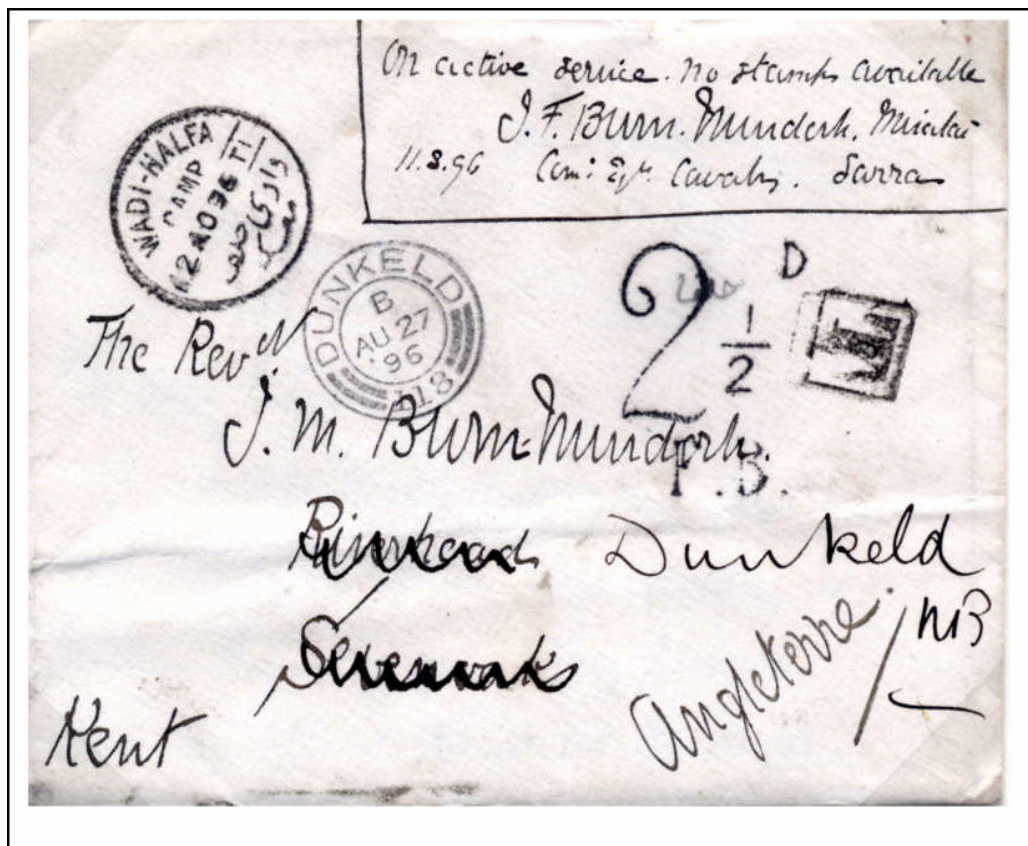 On active service. no stamps available
J. F. Burn-Murdoch. Miralai
11.8.96 Com: Egt. Cavalry. Sarras
WADI-HALFA
CAMP
12 AO 96
TI
وادى حلفا
DUNKELD
B
AU 27
96
118
2 1/2 D
F.B.
T
The Revd
J. M. Burn-Murdoch.
Riverhead Dunkeld
Sevenoaks
Angleterre / NB
Kent